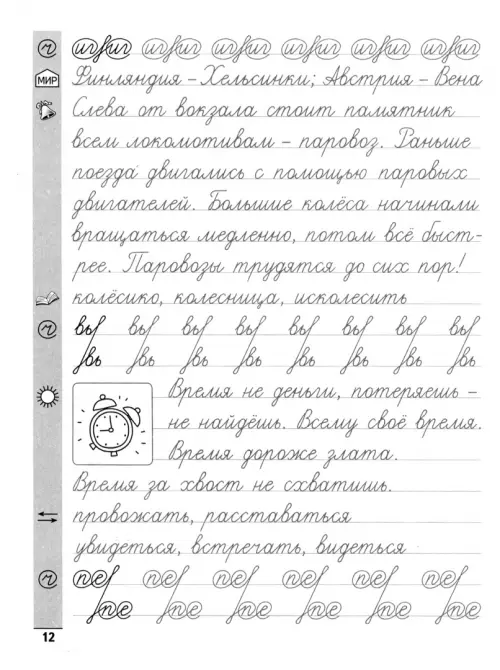 иг иг иг иг иг иг иг иг иг иг иг иг иг иг
МИР Финляндия – Хельсинки; Австрия – Вена
Слева от вокзала стоит памятник
всем локомотивам – паровоз. Раньше
поезда двигались с помощью паровых
двигателей. Большие колёса начинали
вращаться медленно, потом всё быст-
рее. Паровозы трудятся до сих пор!
колёсико, колесница, исколесить
вы вы вы вы вы вы вы вы
вь вь вь вь вь вь вь вь
Время не деньги, потеряешь –
не найдёшь. Всему своё время.
Время дороже злата.
Время за хвост не схватишь.
провожать, расставаться
увидеться, встречать, видеться
пе пе пе пе пе пе
пе пе пе пе пе пе
12